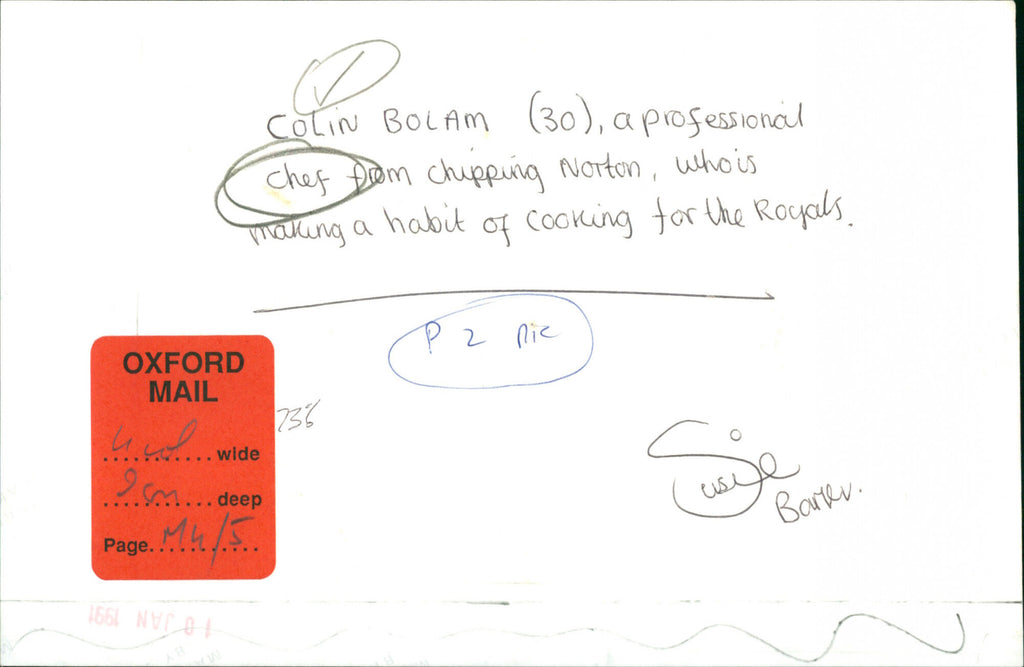 COLIN BOLAM (30), a professional
chef from Chipping Norton, who is
making a habit of cooking for the Royals.
P 2 pic
OXFORD
MAIL
4 col wide
9 cm deep
Page M4/5
Susie
10 JAN 1991